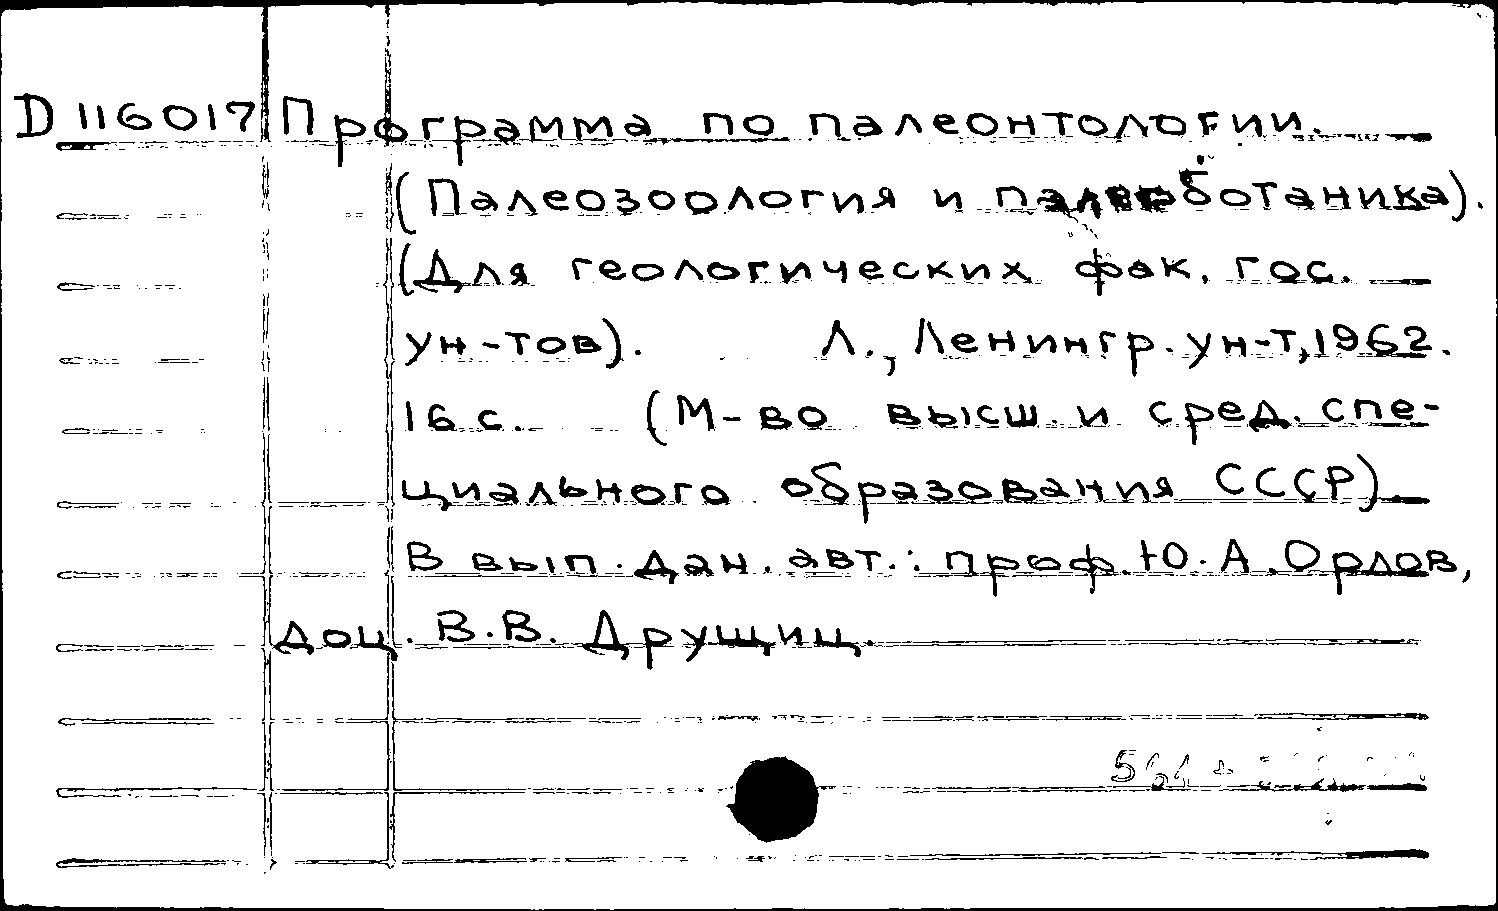 D 116017 Программа по палеонтологии.
(Палеозоология и палеоботаника).
(Для геологических фак. гос.
ун-тов). Л., Ленингр. ун-т, 1962.
16 с. (М-во высш. и сред. спе-
циального образования СССР)
В вып. дан. авт.: проф. Ю. А. Орлов,
доц. В. В. Друщиц.